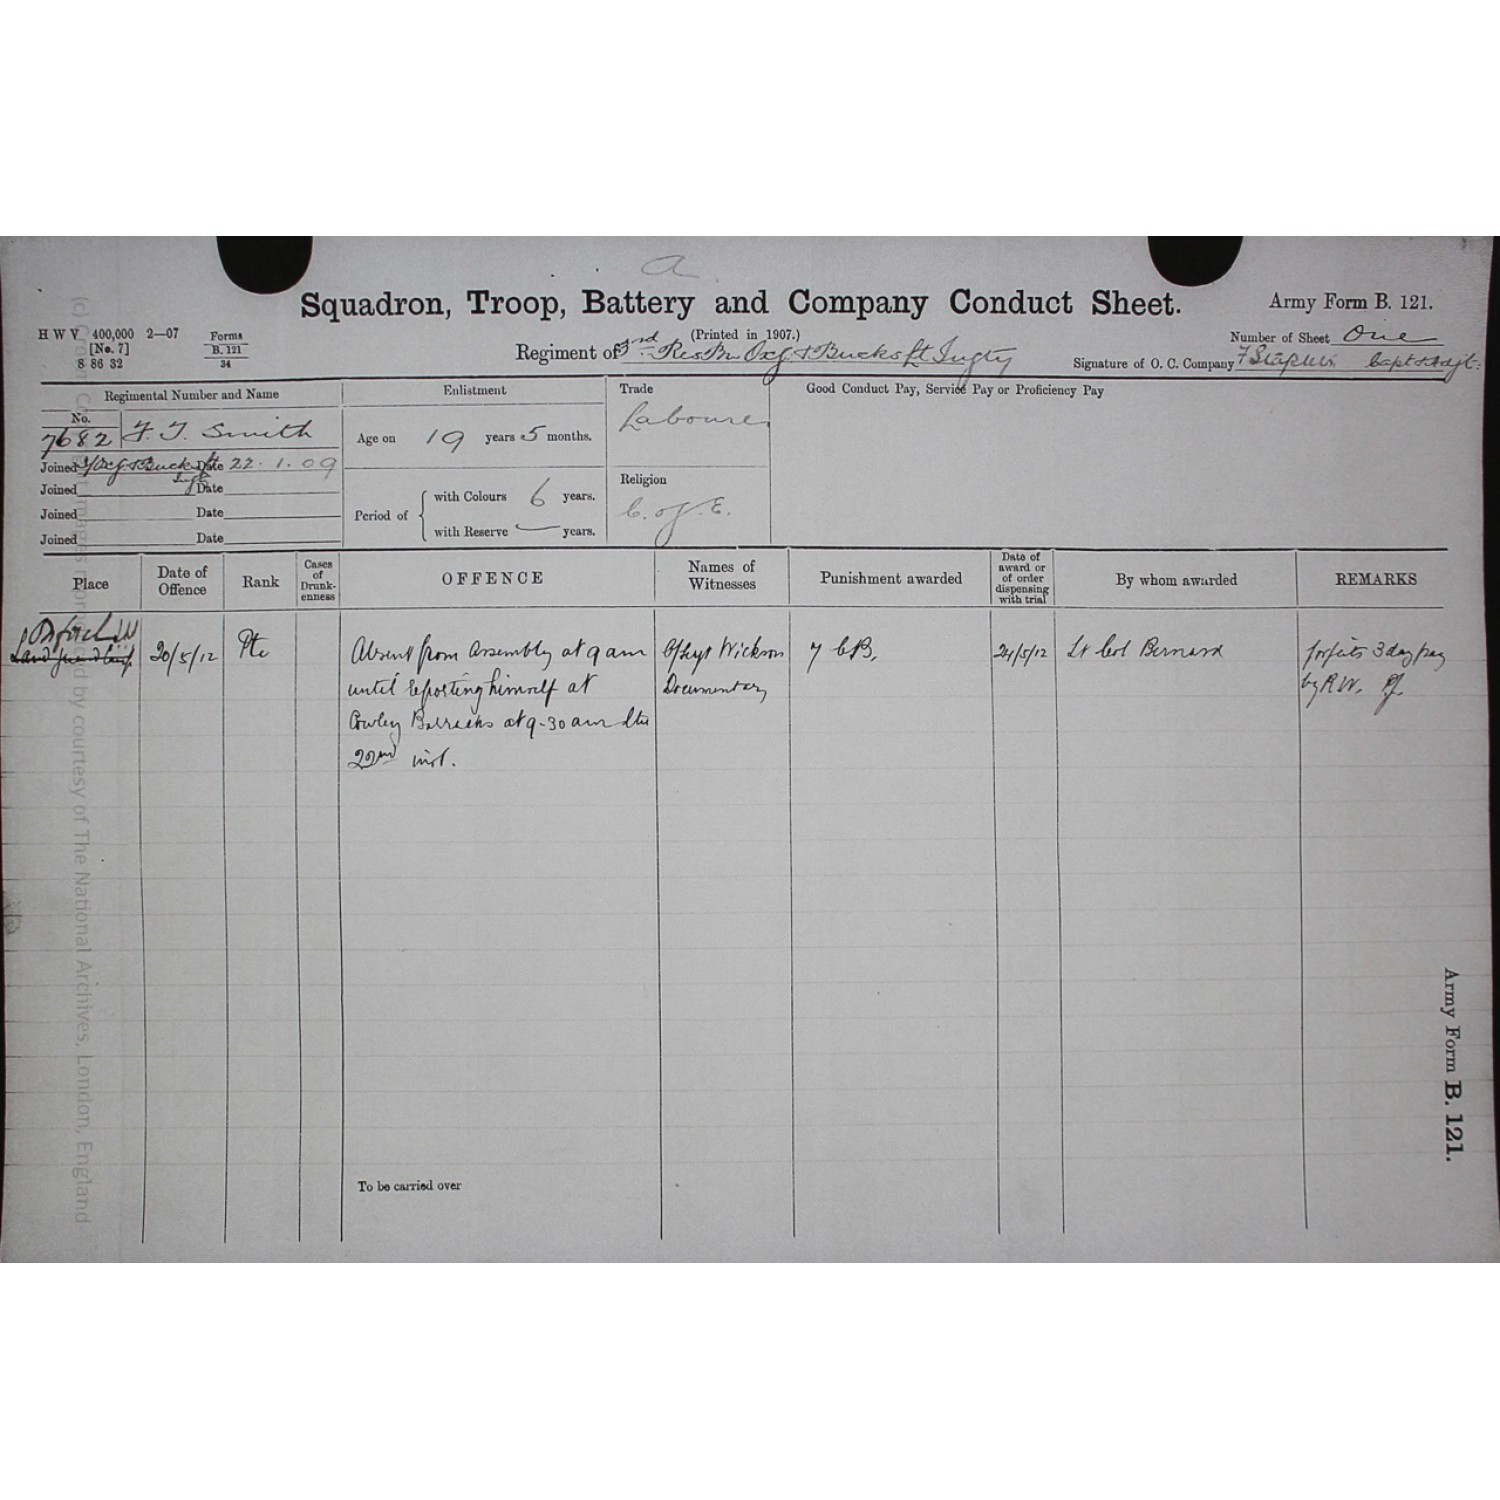 a
Squadron, Troop, Battery and Company Conduct Sheet.
Army Form B. 121.
H W V 400,000 2—07
[No. 7]
8 86 32
Forms
B. 121
34
(Printed in 1907.)
Regiment of 3rd Res Bn Oxf & Bucks Lt Infty
Number of Sheet One
Signature of O. C. Company Capt & Adjt.
Regimental Number and Name
No.
7682 F. J. Smith
Joined Oxf & Bucks Lt Date 22.1.09
Infty
Joined Date
Joined Date
Joined Date
Enlistment
Age on 19 years 5 months.
Period of
with Colours 6 years.
with Reserve — years.
Trade
Labourer
Religion
C. of E.
Good Conduct Pay, Service Pay or Proficiency Pay
Place
Date of Offence
Rank
Cases of Drunk-enness
OFFENCE
Names of Witnesses
Punishment awarded
Date of award or of order dispensing with trial
By whom awarded
REMARKS
20/5/12 Pte Absent from Assembly at 9 am Wickson 7 CB. 24/5/12 Lt Col Bernard forfeits 3 day pay
until reporting himself at Documentary by R.W.
Cowley Barracks at 9-30 am
22nd inst.
To be carried over
Army Form B. 121.
(c) Crown Copyright images reproduced by courtesy of The National Archives, London, England